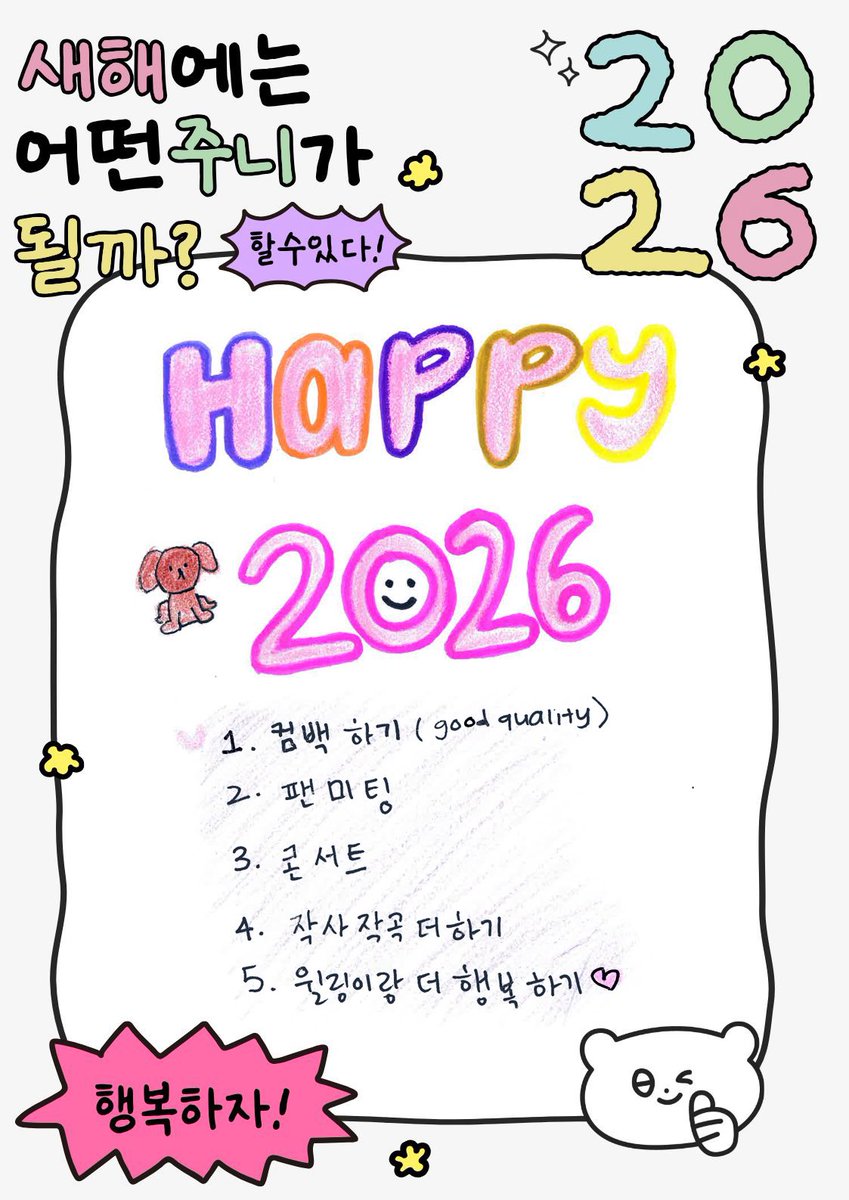 새해에는
어떤주니가
될까?
할수있다!
20
26
Happy
2026
1. 컴백 하기 ( good quality )
2. 팬 미팅
3. 콘서트
4. 작사작곡 더하기
5. 윌링이랑 더 행복 하기♡
행복하자!